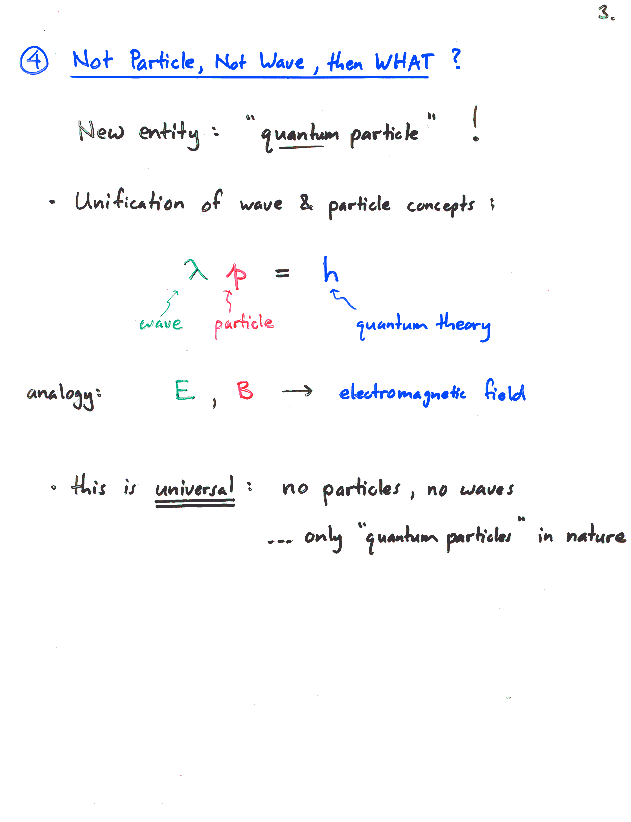 3.
④ Not Particle, Not Wave, then WHAT ?
New entity : "quantum particle" !
• Unification of wave & particle concepts :
λ p = h
wave particle quantum theory
analogy: E , B → electromagnetic field
• this is universal : no particles , no waves
.... only "quantum particles" in nature